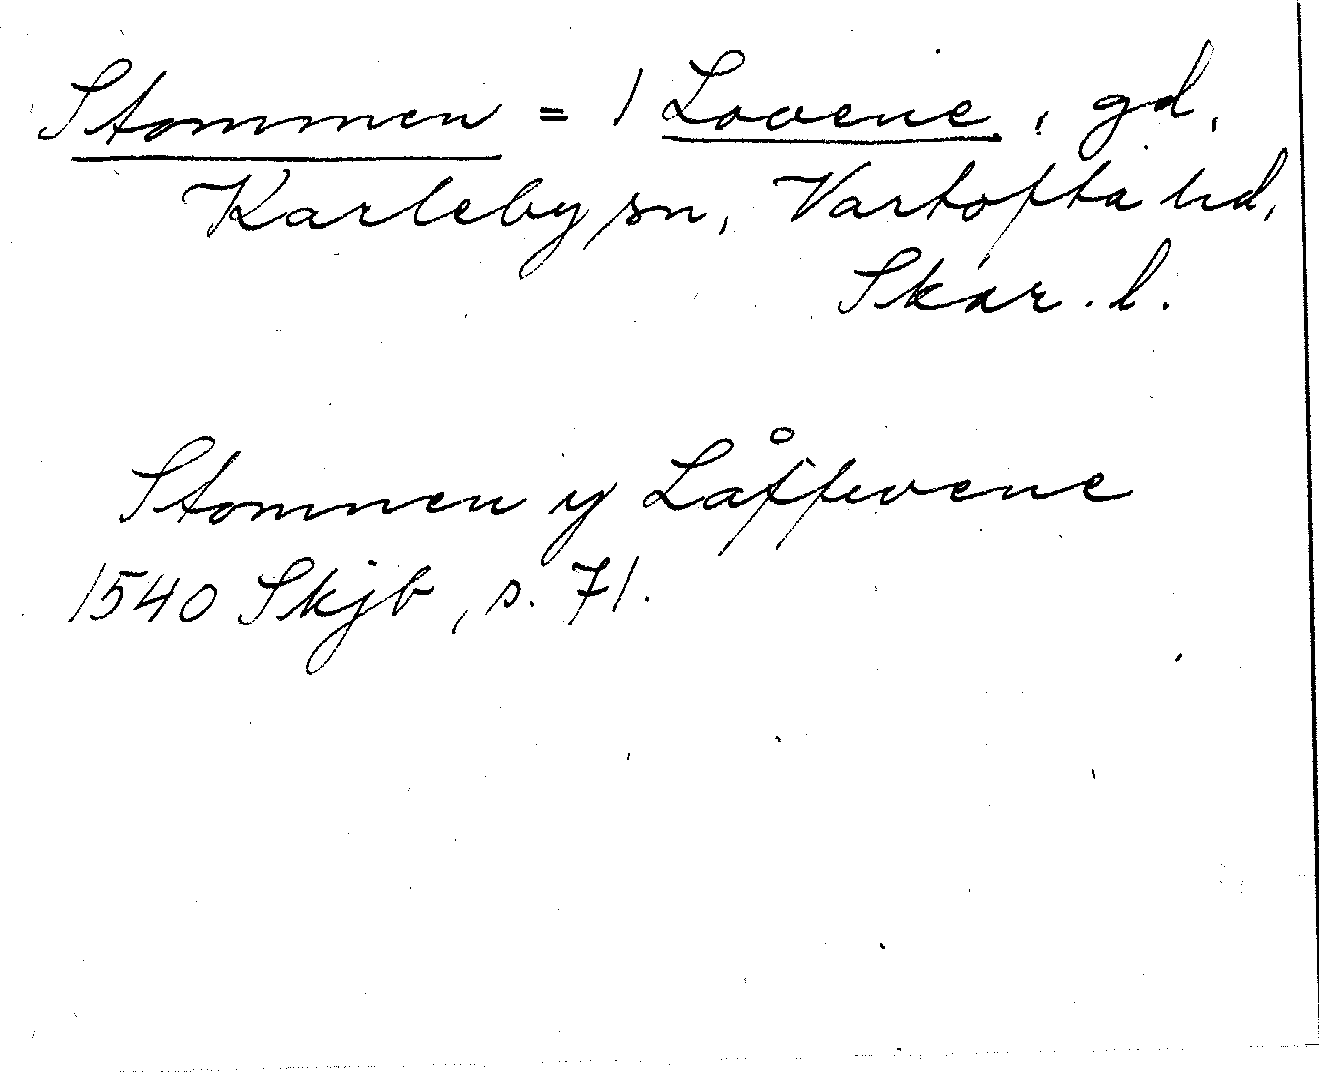 Stommen = 1 Lovene, gd,
Karleby sn, Vartofta hd,
Skar. l.
Stommen y Låffuene
1540 Skjb, s. 71.